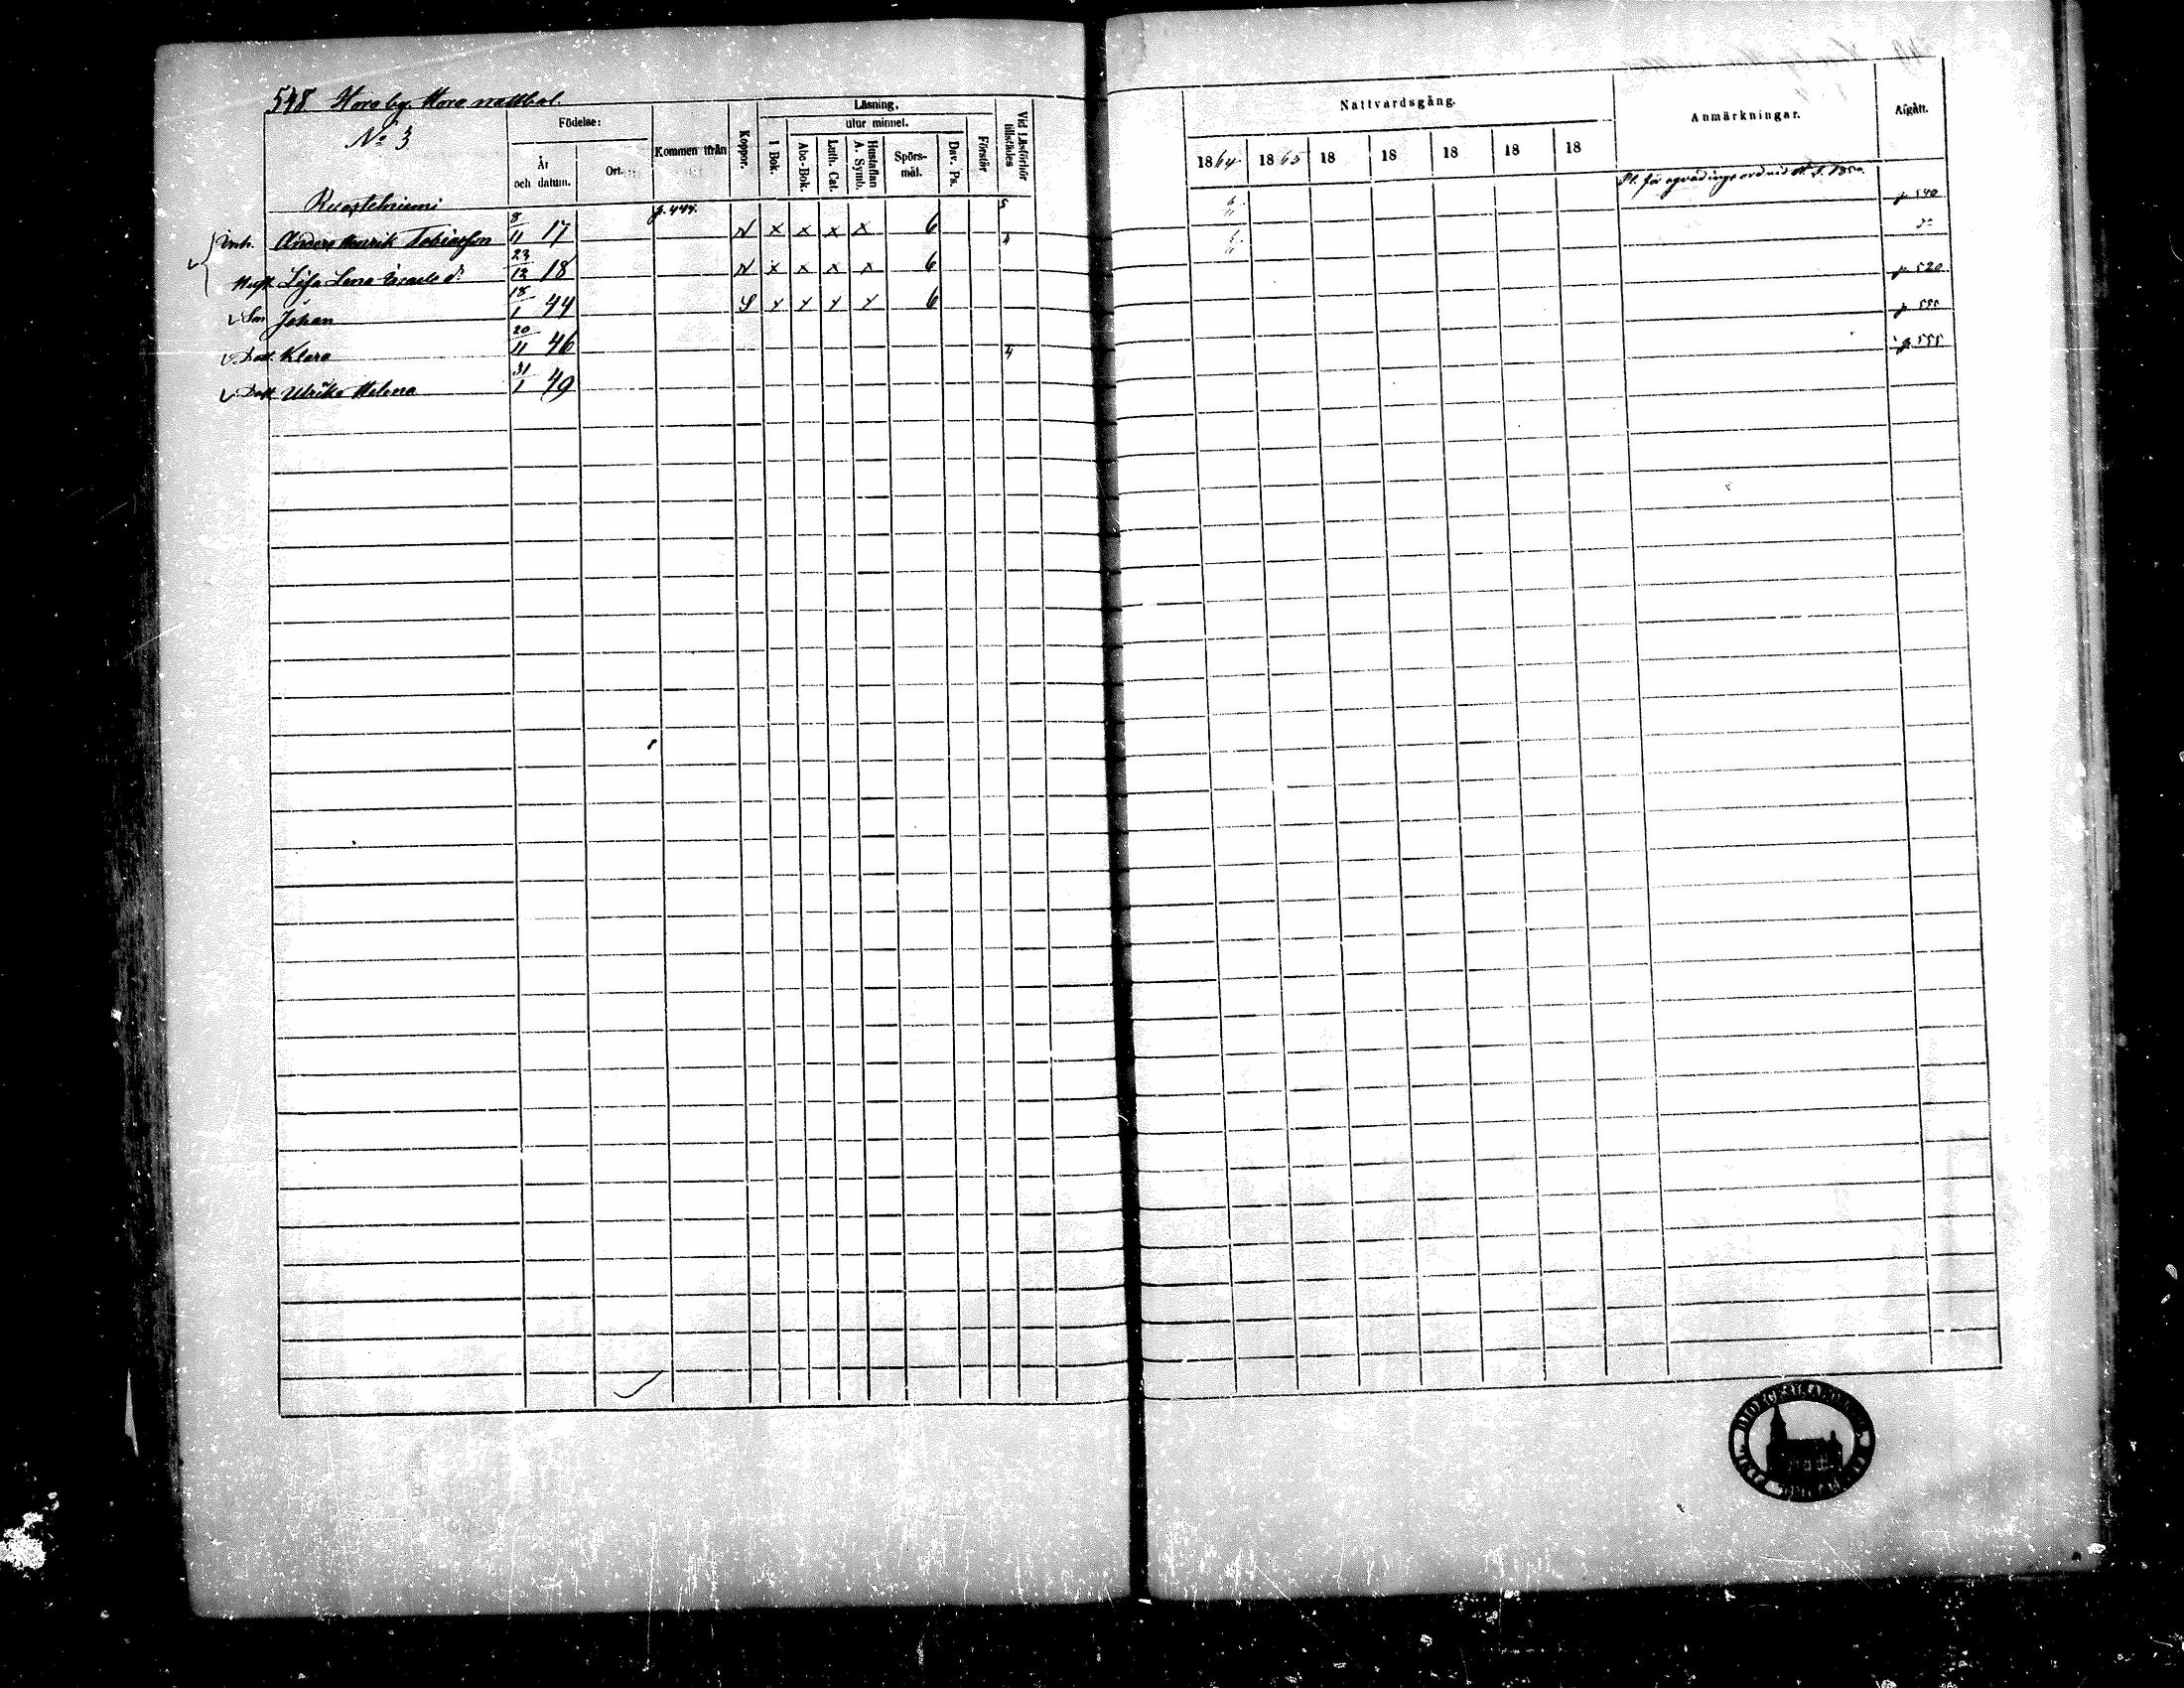 548 Horo by. Horo nattbol.
No 3
Födelse:
År och datum.
Ort.
Kommen ifrån
Koppor.
Läsning,
utur minnet.
I Bok.
Abc-Bok.
Luth. Cat.
Hustaflan A. Symb.
Spörsmål.
Dav. Ps.
Förstår
Vid Läsförhör tillstädes
Nattvardsgång.
1864 1865 18 18 18 18 18
Anmärkningar.
Afgått.
p. 444.
Inh. Anders Henrik Tobiasson 8/11 17 N x x x x 6 5 p. 540
Hust. Lisa Lena Israels dr 23/12 18 N x x x x 6 4 do
Son Johan 18/1 44 S x x x x 6 p. 520
Dott. Klara 20/11 46 p. 555
Dott Ulrika Helena 31/1 49 4 p. 555